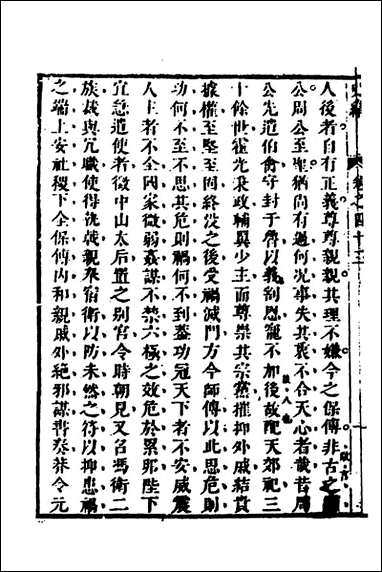 卷之四十三
人後者自有正義尊尊親親其理不嫌今之保傅非古之周
公周公至聖猶尚有過何況事失其衷不合天心者哉昔周
公先遣伯禽守封于魯以義割恩寵不加後故配天郊祀三
十餘世霍光秉政輔翼少主而尊崇其宗黨摧抑外戚結貴
據權至堅至固終没之後受禍滅門方今師傅以此思危則
功何不至不思其危則禍何不到蓋功冠天下者不安威震
人主者不全國家微弱姦謀不禁六極之效危於累卵陛下
宜急遣使者徵中山太后置之别宮令時朝見又召馮衛二
族裁與冗職使得執戟親奉宿衛以防未然之符以抑患禍
之端上安社稷下全保傅内和親戚外絕邪謀書奏莽令元